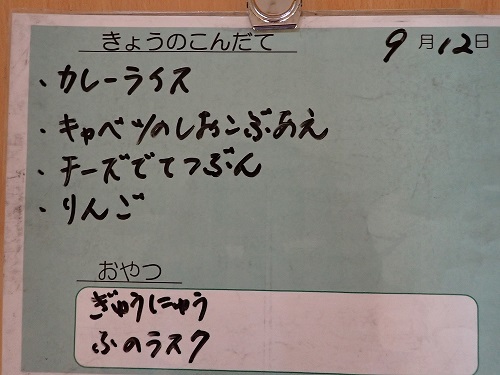 きょうのこんだて 9月12日
・カレーライス
・キャベツのしおこぶあえ
・チーズでてつぶん
・りんご
おやつ
ぎゅうにゅう
ふのラスク